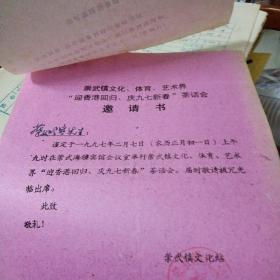 崇武镇文化、体育、艺术界
“迎香港回归、庆九七新春”茶话会
邀请书
先生：
谨定于一九九七年二月七日（农历正月初一日）上午
九时在崇武海螺宾馆会议室举行崇武镇文化、体育、艺术
界“迎香港回归、庆九七新春”茶话会。届时敬请拔冗光
临出席。
此致
敬礼！
崇武镇文化站